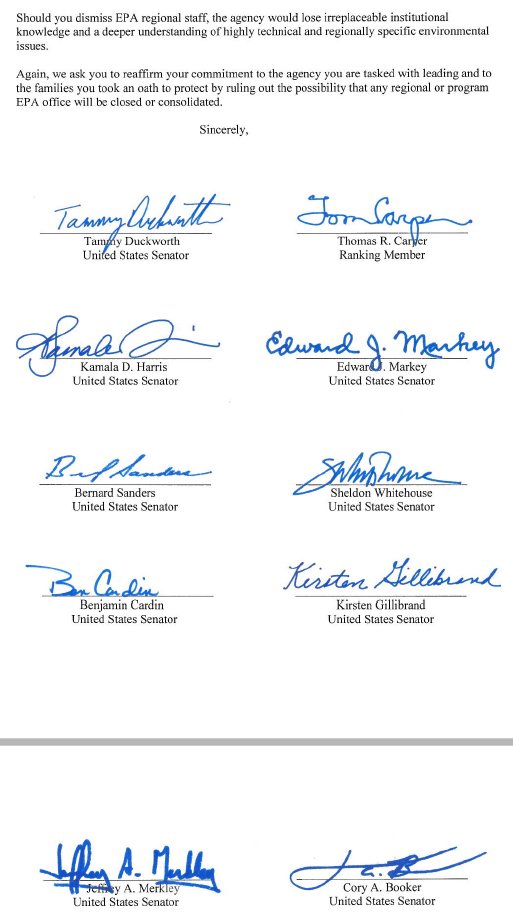 Should you dismiss EPA regional staff, the agency would lose irreplaceable institutional
knowledge and a deeper understanding of highly technical and regionally specific environmental
issues.
Again, we ask you to reaffirm your commitment to the agency you are tasked with leading and to
the families you took an oath to protect by ruling out the possibility that any regional or program
EPA office will be closed or consolidated.
Sincerely,
Tammy Duckworth Tom Carper
Tammy Duckworth Thomas R. Carper
United States Senator Ranking Member
Kamala Edward J. Markey
Kamala D. Harris Edward J. Markey
United States Senator United States Senator
Sanders SWhitehouse
Bernard Sanders Sheldon Whitehouse
United States Senator United States Senator
Ben Cardin Kirsten Gillibrand
Benjamin Cardin Kirsten Gillibrand
United States Senator United States Senator
Jeffrey A. Merkley
Jeffrey A. Merkley Cory A. Booker
United States Senator United States Senator